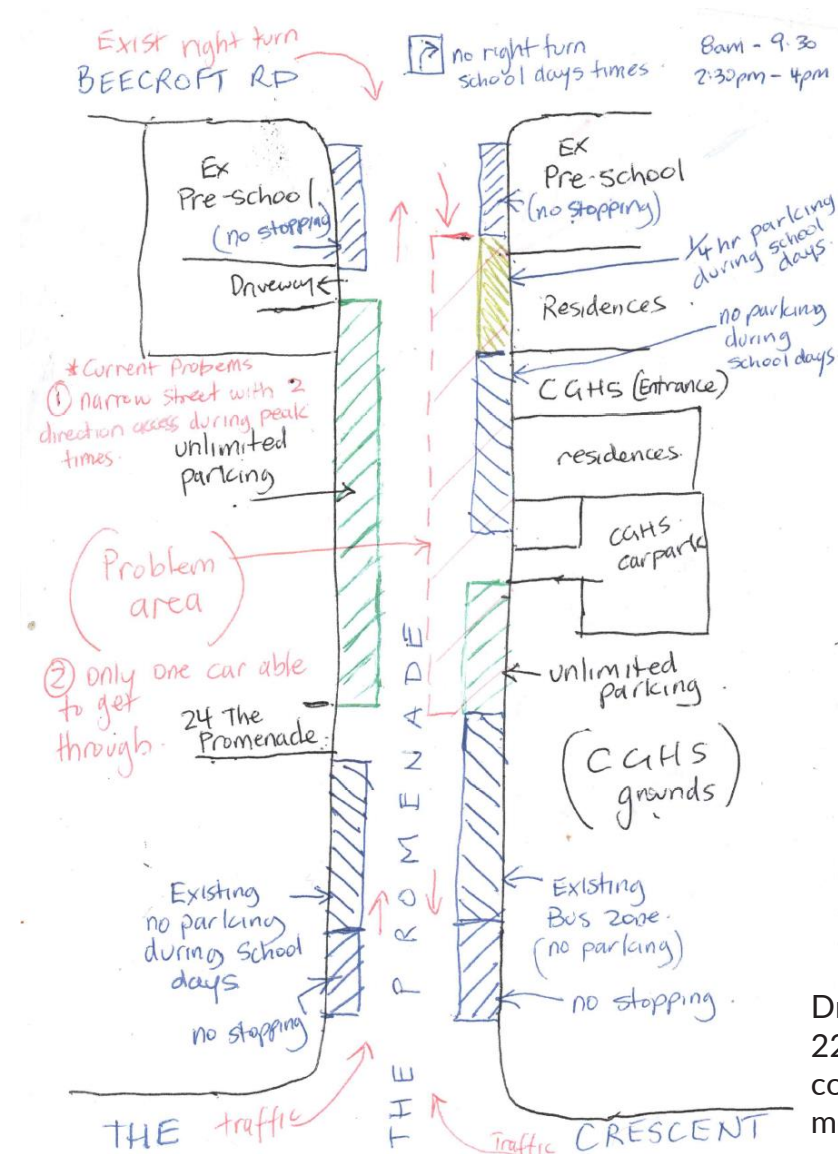 Exist right turn
BEECROFT RD
no right turn
school days times.
8am - 9.30
2:30pm - 4pm
Ex
Pre-school
(no stopping)
Driveway
Ex
Pre-school
(no stopping)
1/4 hr parking
during school
days.
Residences
no parking
during
school days
*Current Probems
① narrow street with 2
direction access during peak
times.
unlimited
parking
CGHS (Entrance)
residences.
CGHS
carpark
(Problem
area)
② only one car able
to get
through.
24 The
Promenade.
unlimited
parking.
(CGHS
grounds)
THE PROMENADE
Existing
no parking
during School
days
no stopping
Existing
Bus zone.
(no parking)
no stopping.
THE
traffic
Traffic
CRESCENT
22